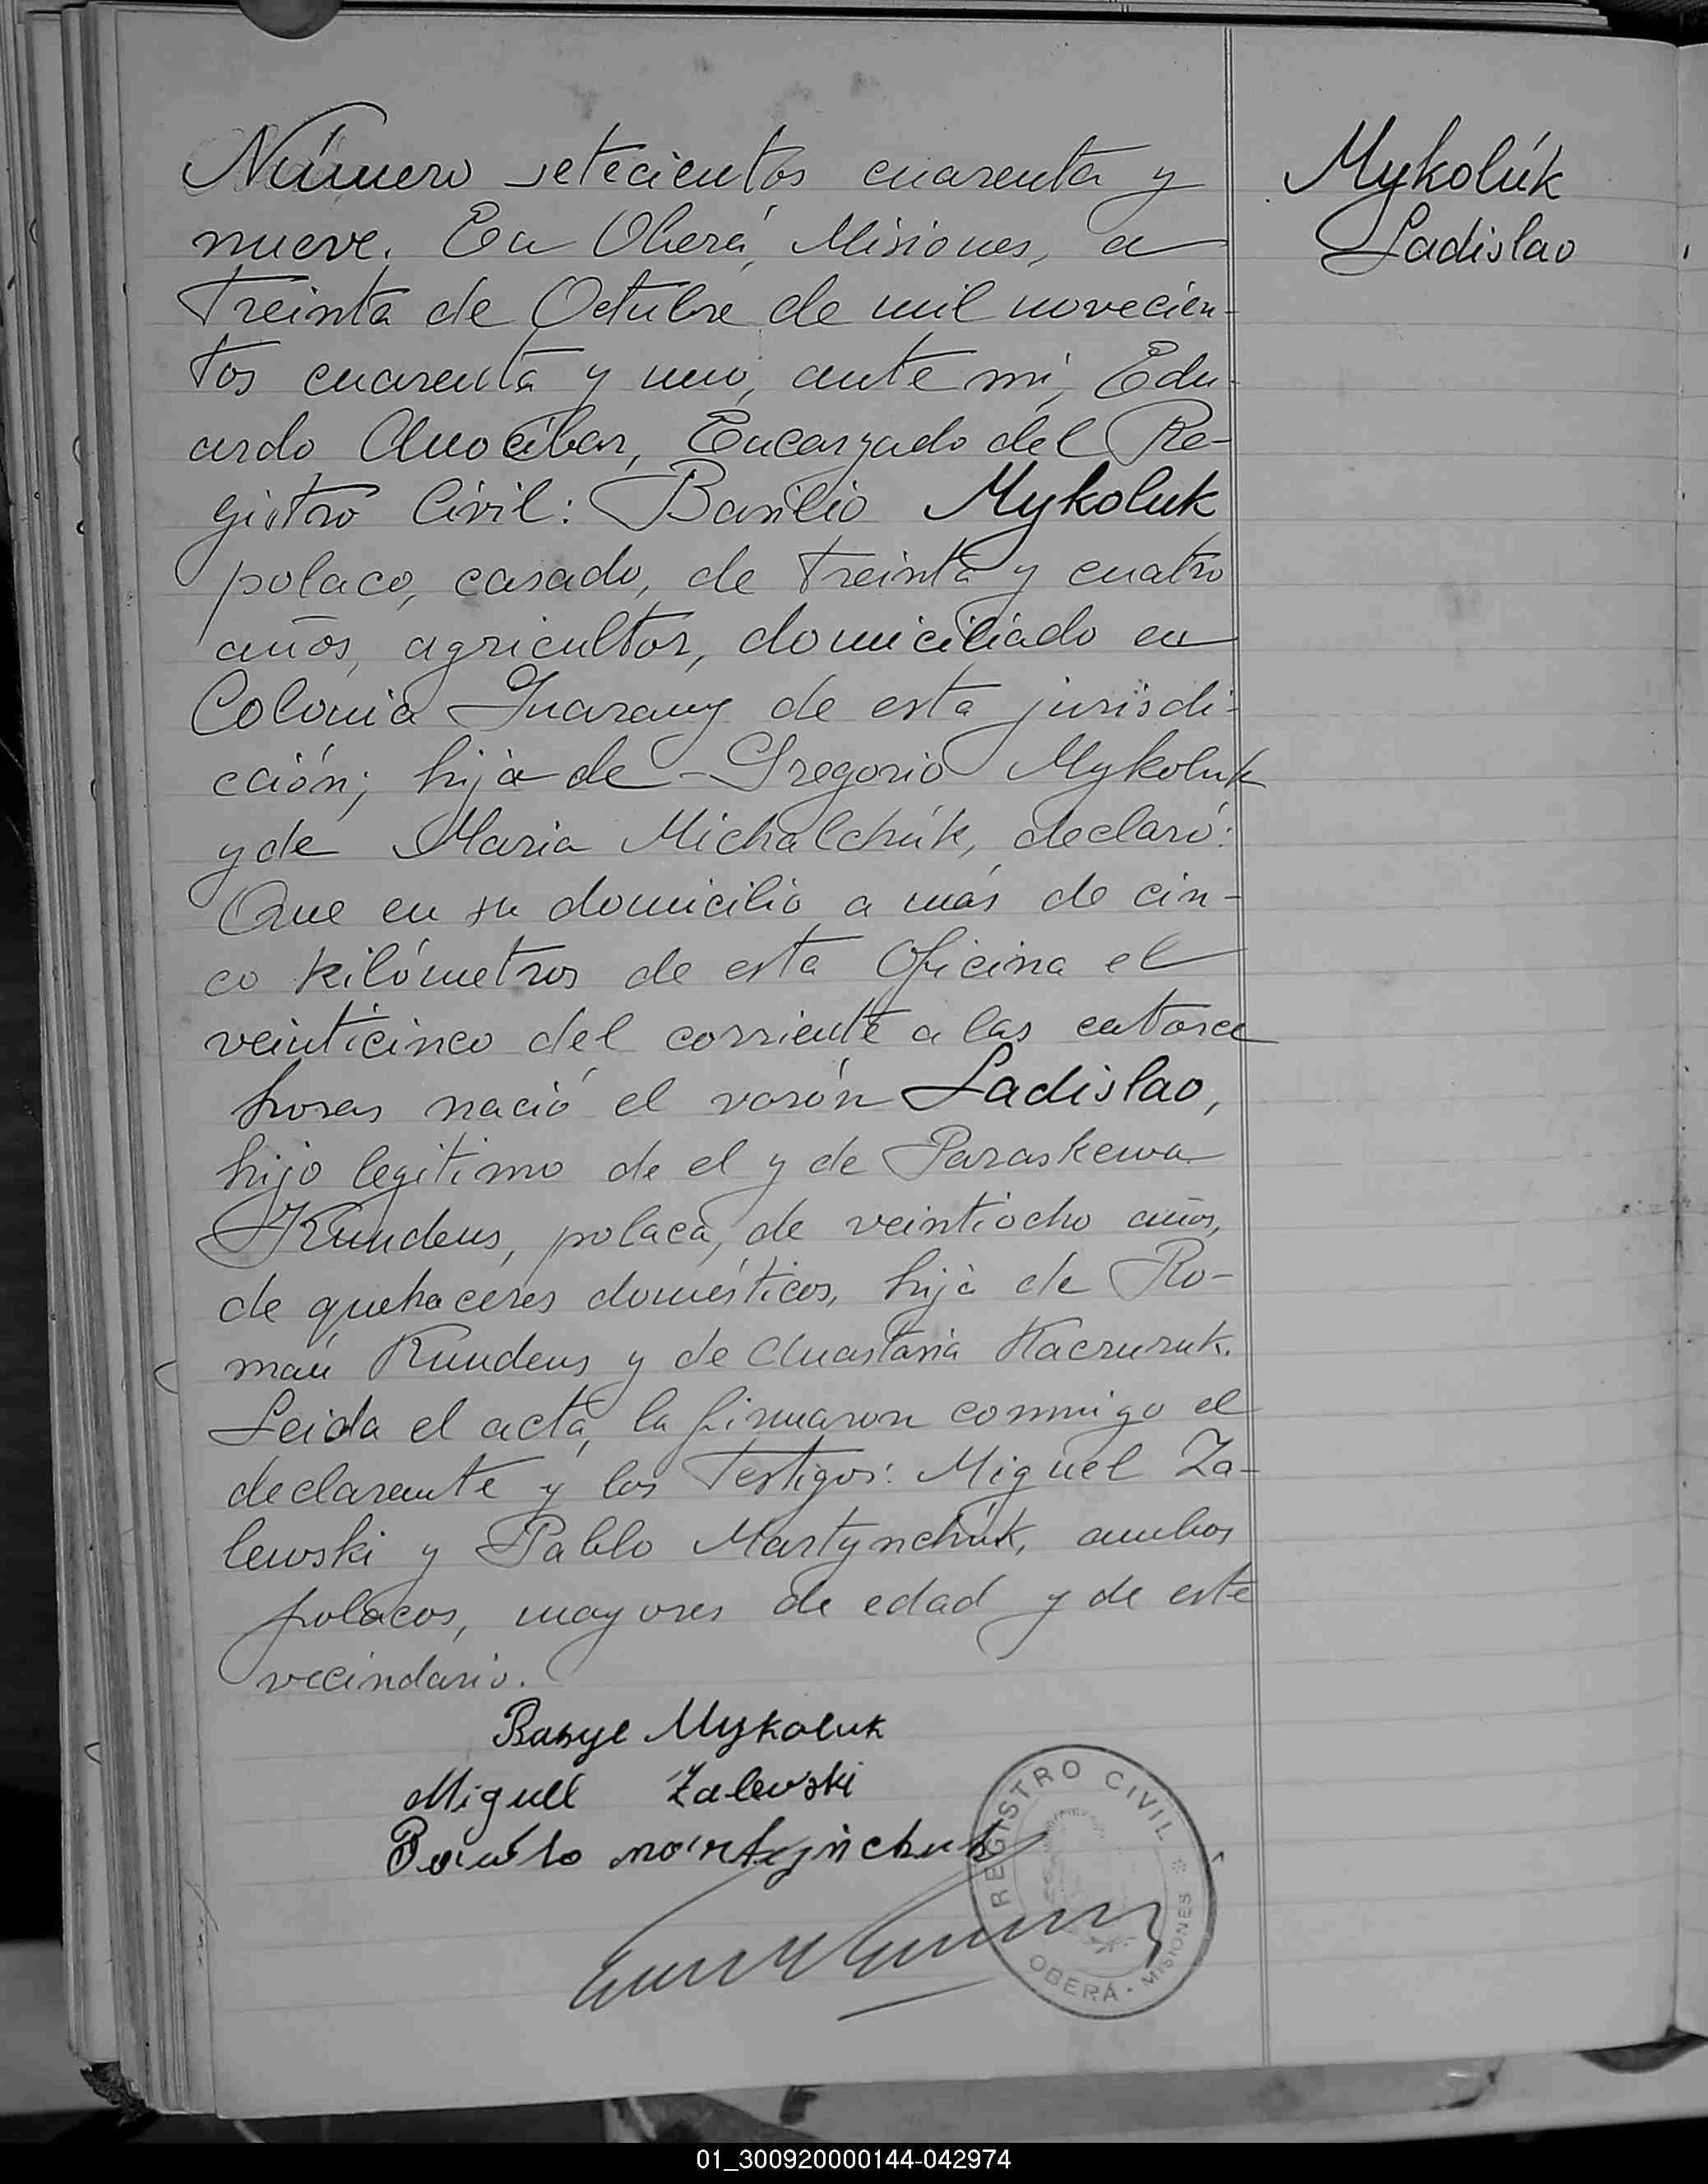 Número setecientos cuarenta y
nueve. En Oberá, Misiones, a
treinta de Octubre de mil novecien-
tos cuarenta y uno, ante mí, Edu-
ardo Anocibar, Encargado del Re-
gistro Civil: Basilio Mykoluk
polaco, casado, de treinta y cuatro
años, agricultor, domiciliado en
Colonia Guarany de esta jurisdi-
cción; hijo de Gregorio Mykoluk
y de Maria Michalchúk, declaró:
Que en su domicilio a más de cin-
co kilómetros de esta Oficina el
veinticinco del corriente a las catorce
horas nació el varón Ladislao,
hijo legitimo de el y de Paraskewa
Kundeus, polaca, de veintiocho años,
de quehaceres domésticos, hija de Ro-
mán Kundeus y de Anastasia Kaczuruk.
Leida el acta, la firmaron conmigo el
declarante y los testigos: Miguel Za-
lewski y Pablo Martynchúk, ambos
polacos, mayores de edad y de este
vecindario.
Basyl Mykoluk
Miguel Zalewski
martynchuk
Mykolúk
Ladislao
REGISTRO CIVIL
OBERÁ · MISIONES
01_300920000144-042974